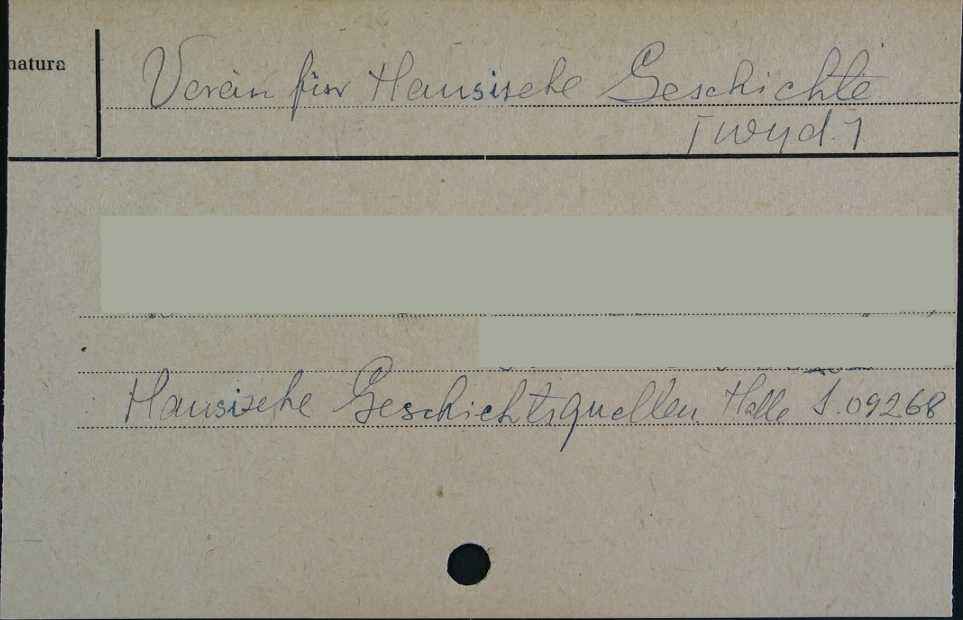 natura
Verein für Hansische Geschichte
[wyd.]
Hansische Geschichtsquellen Halle S. 09268